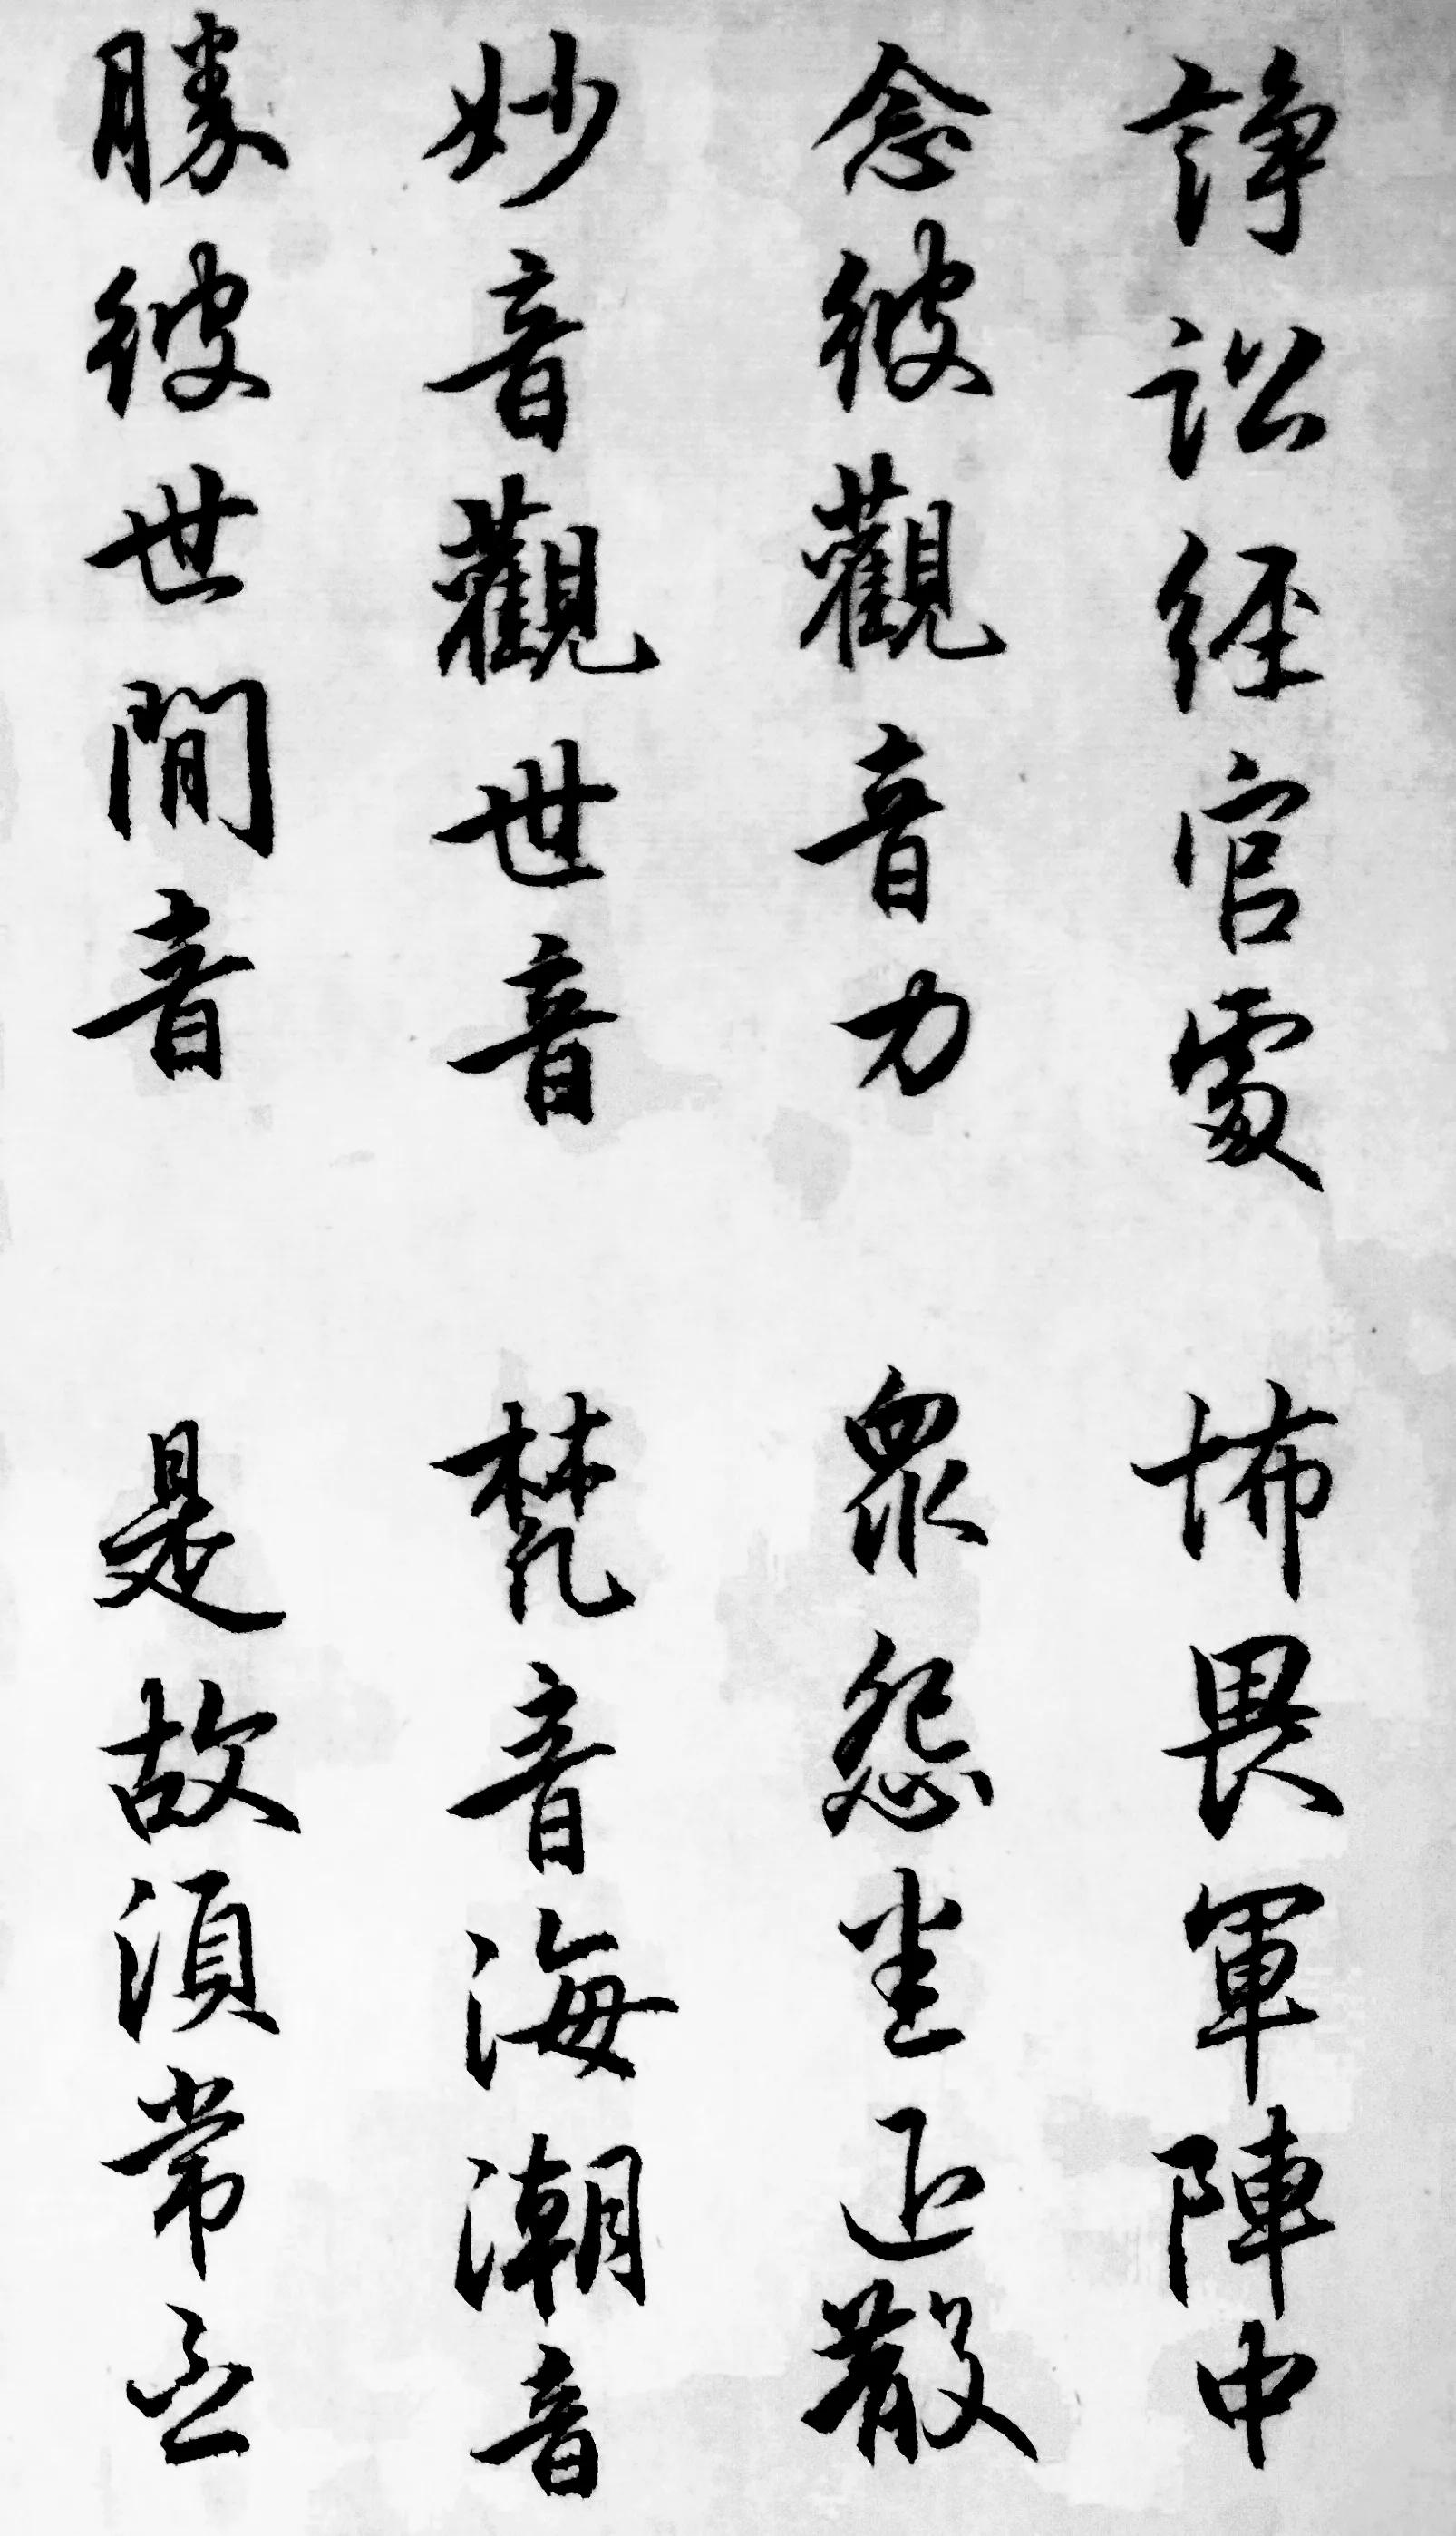 諍訟經官處 怖畏軍陣中
念彼觀音力 衆怨悉退散
妙音觀世音 梵音海潮音
勝彼世閒音 是故須常念